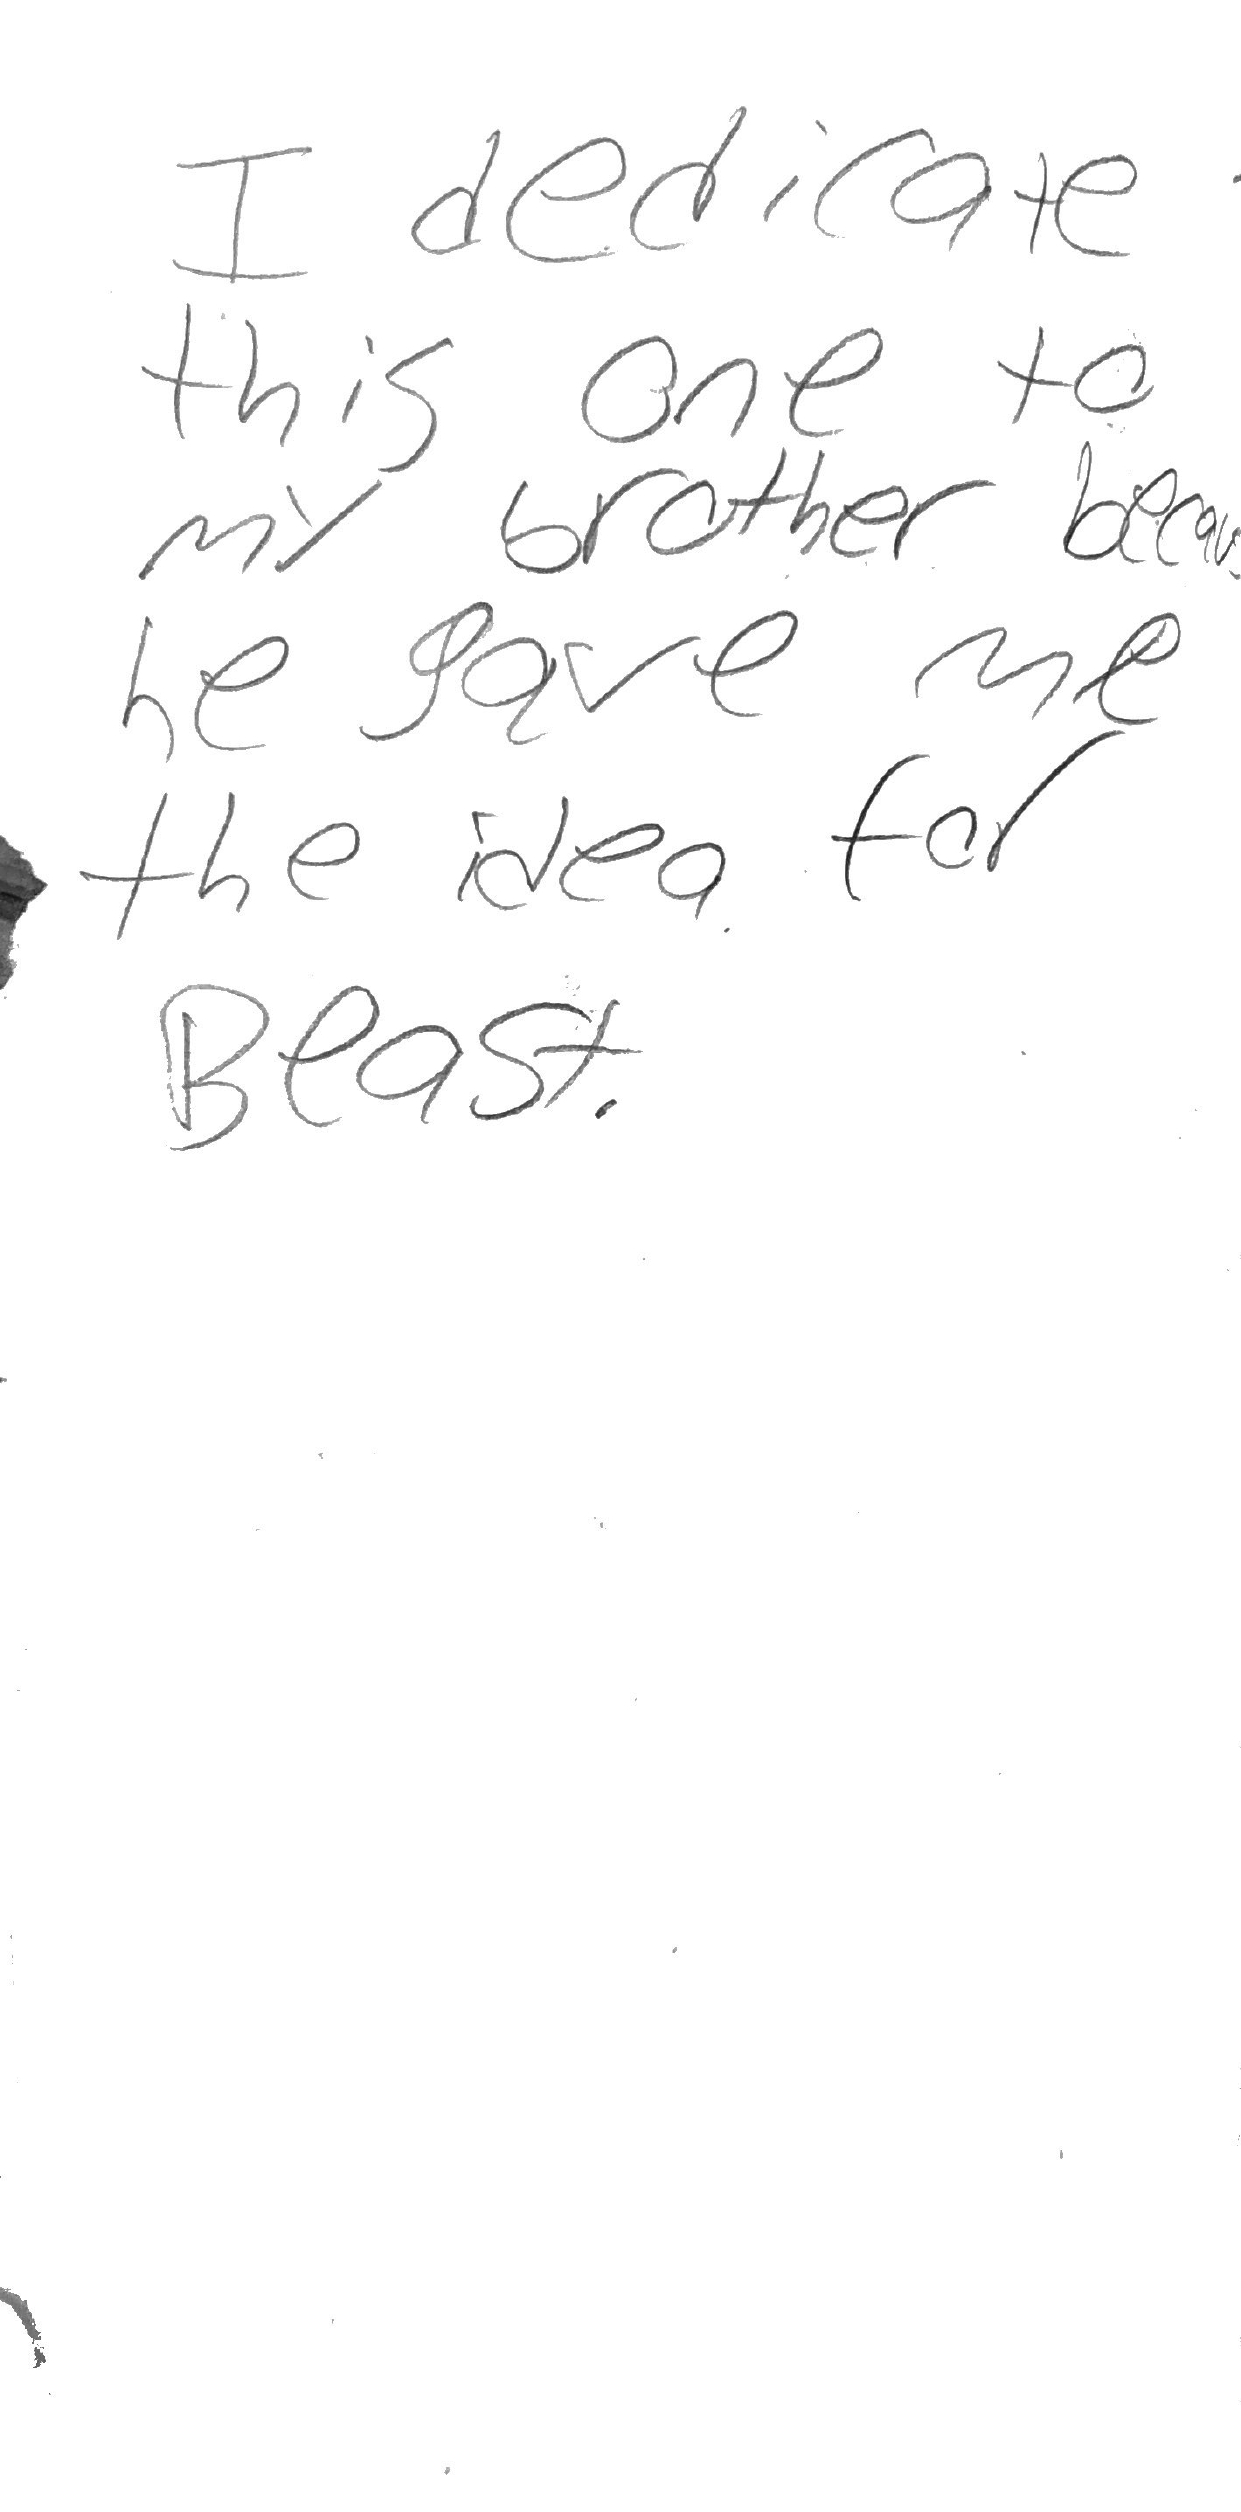 I dedicate
this one to
my brother becaus
he gave me
the idea for
Beast.